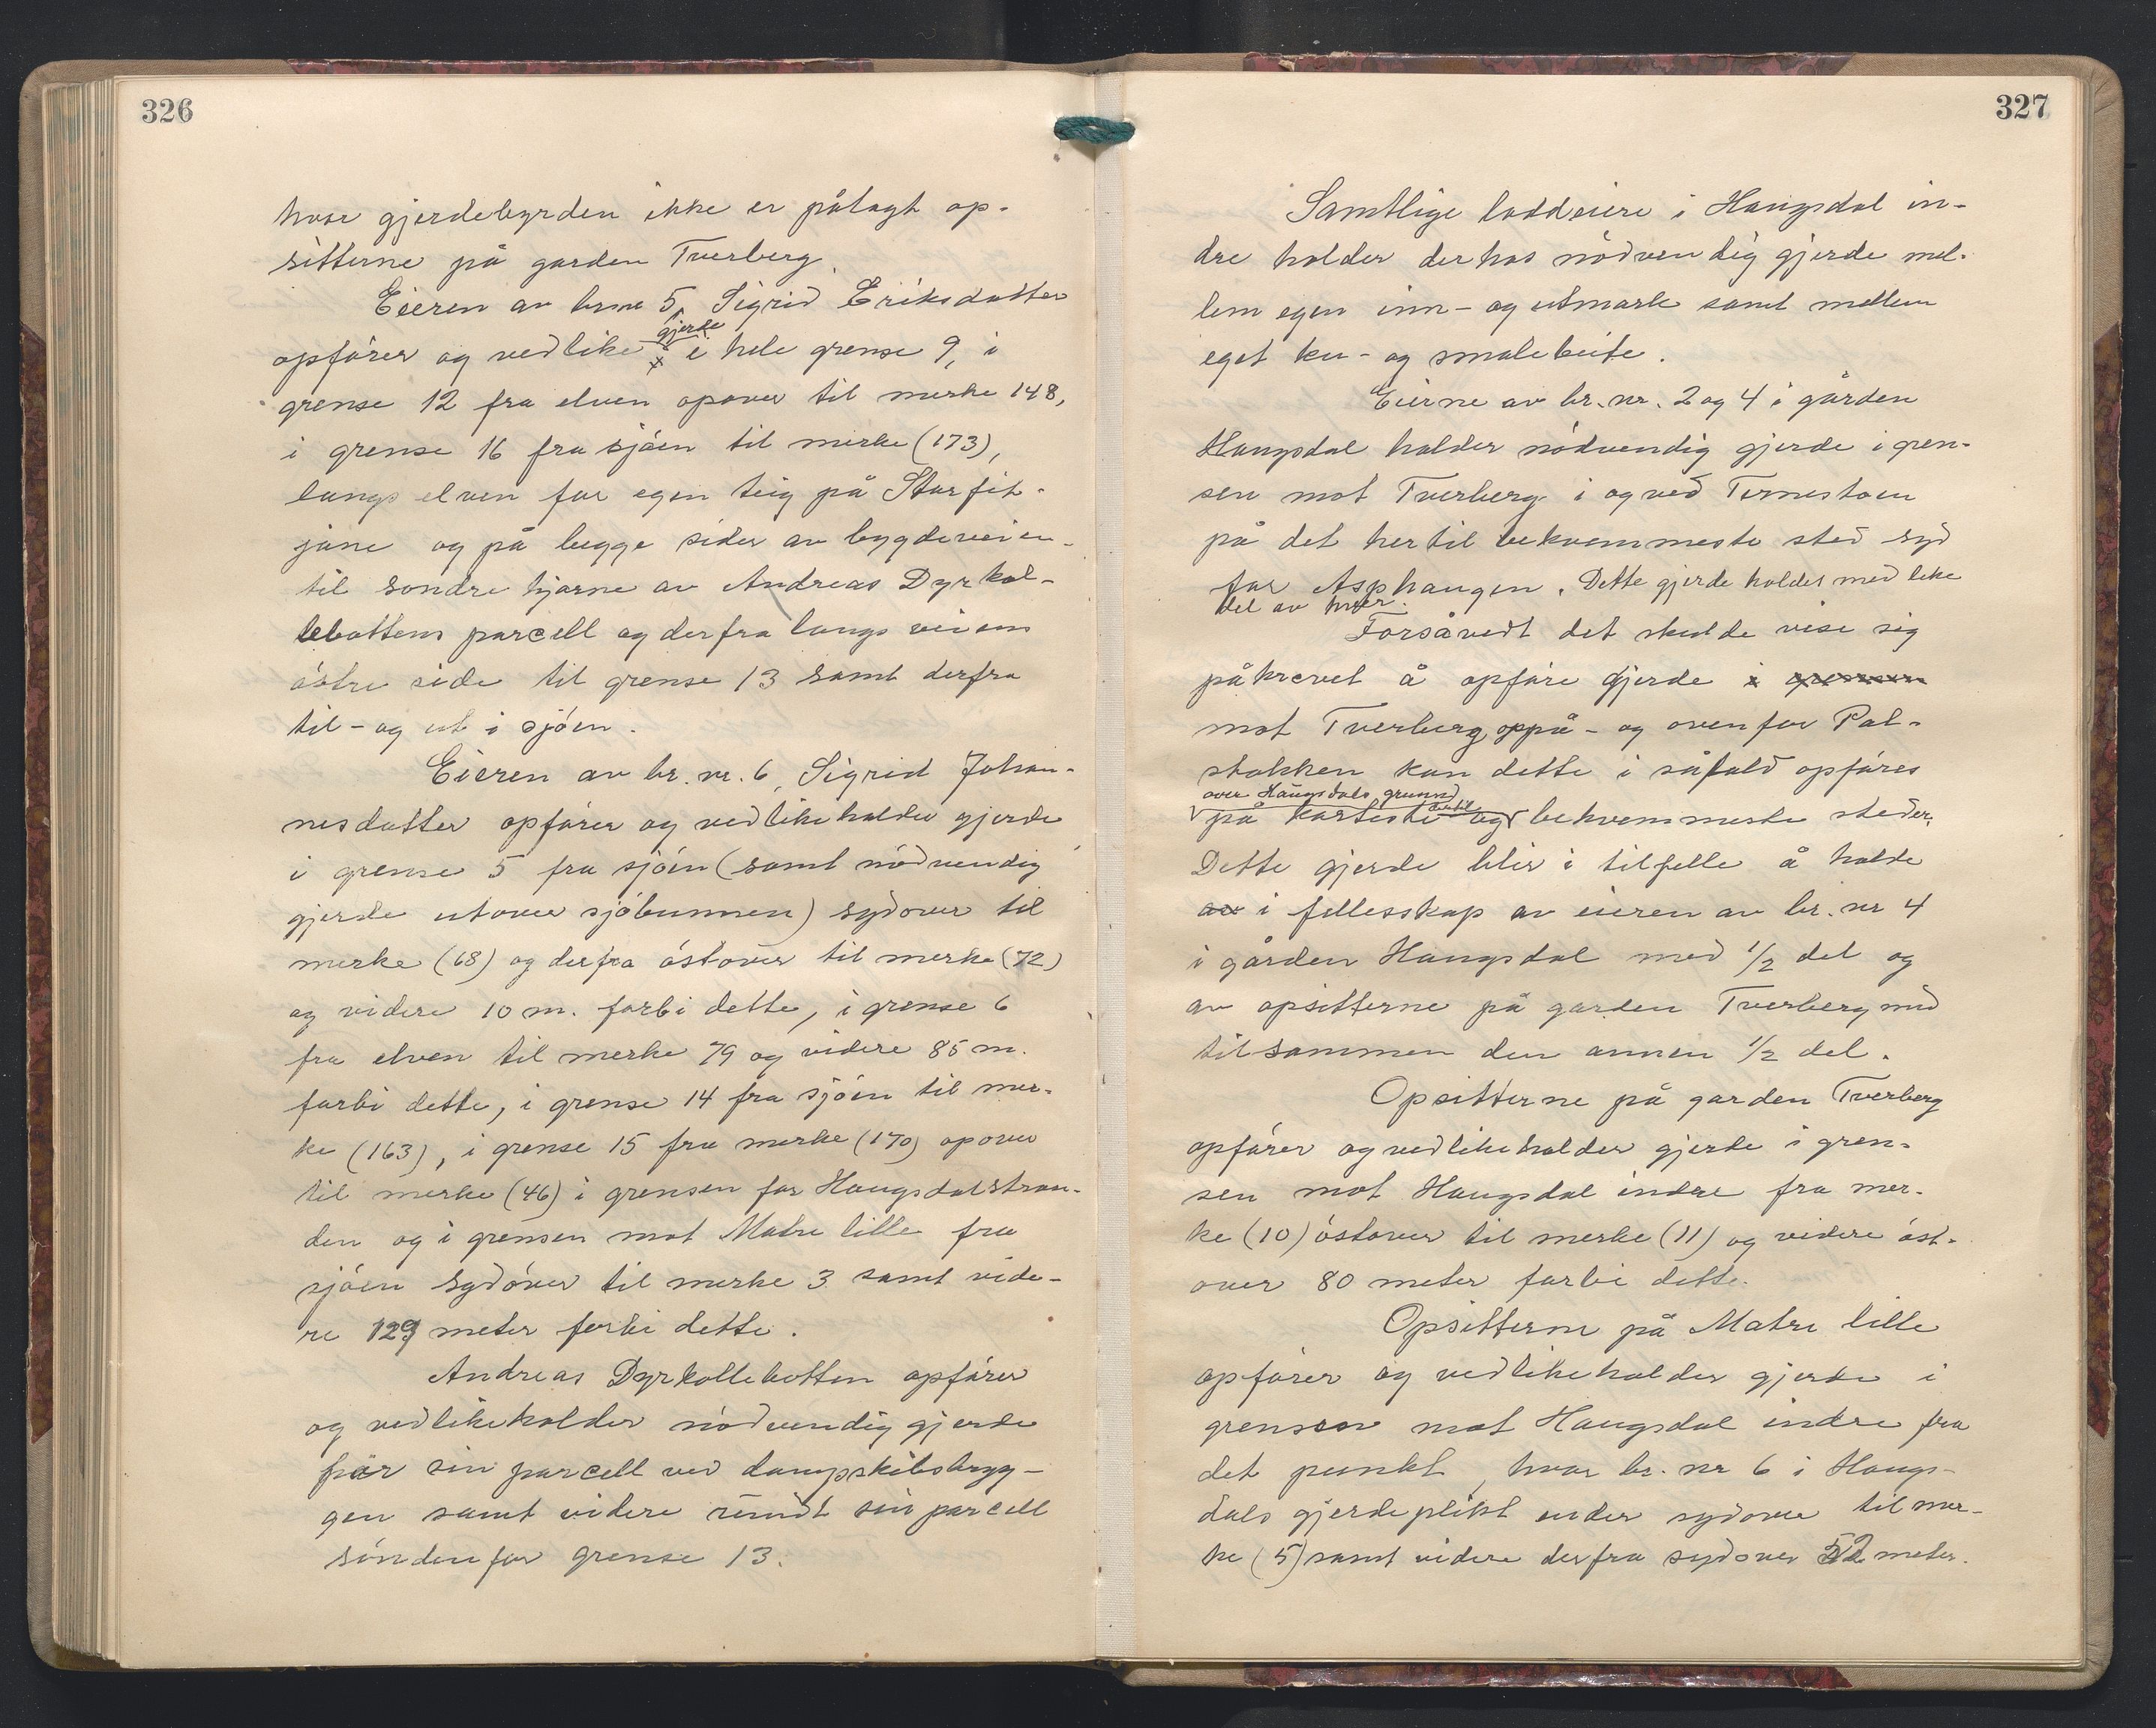 326
hvor gjerdebyrden ikke er pålagt op-
sitterne på garden Tverberg.
Eieren av br.nr 5, Sigrid Eriksdatter
gjerde
opfører og vedlike i hele grense 9, i
grense 12 fra elven opover til merke 148,
i grense 16 fra sjøen til merke (173),
langs elven for egen teig på Storfit-
jane og på begge sider av bygdeveien
til søndre hjørne av Andreas Dyrkol-
lebottens parcell og derfra langs veiens
østre side til grense 13 samt derfra
til - og ut i sjøen.
Eieren av br. nr. 6, Sigrid Johan-
nesdatter opfører og vedlikeholder gjerde
i grense 5 fra sjøen (samt nødvendig
gjerde utover sjøbunnen) sydover til
merke (68) og derfra østover til merke (72)
og videre 10 m. forbi dette, i grense 6
fra elven til merke 79 og videre 85 m.
forbi dette, i grense 14 fra sjøen til mer-
ke (163), i grense 15 fra merke (170) opover
til merke (46) i grensen for Haugsdalstran-
den og i grensen mot Matre lille fra
sjøen sydover til merke 3 samt vide-
re 129 meter forbi dette.
Andreas Dyrkollebotten opfører
og vedlikeholder nødvendig gjerde
for sin parcell ved dampskibsbryg-
gen samt videre rundt sin parcell
sønden for grense 13.
327
Samtlige loddeiere i Haugsdal in-
dre holder derhos nødvendig gjerde mel-
lem egen inn- og utmark samt mellem
eget ku- og smalebeite.
Eierne av br. nr. 2 og 4 i gården
Haugsdal holder nødvendig gjerde i gren-
sen mot Tverberg i og ved
på det hertil bekvemmeste sted syd
for Asphaugen. Dette gjerde holdes med like
del av hver.
Forsåvedt det skulde vise sig
påkrevet å opføre gjerde i grensen
mot Tverberg oppå - og ovenfor Pal-
stokken kan dette i såfald opføres
over Haugsdals grunn
dertil
på korteste og bekvemmeste steder.
Dette gjerde blir i tilfelle å holde
av i fellesskap av eieren av br. nr 4
i gården Haugsdal med 1/2 del og
av opsitterne på garden Tverberg med
tilsammen den annen 1/2 del.
Opsitterne på garden Tverberg
opfører og vedlikeholder gjerde i gren-
sen mot Haugsdal indre fra mer-
ke (10) østover til merke (11) og videre øst-
over 80 meter forbi dette.
Opsitterne på Matre lille
opfører og vedlikeholder gjerde i
grensen mot Haugsdal indre fra
det punkt, hvor br. nr 6 i Haugs-
dals gjerdeplikt ender sydover til mer-
ke (5) samt videre derfra sydover 52 meter.